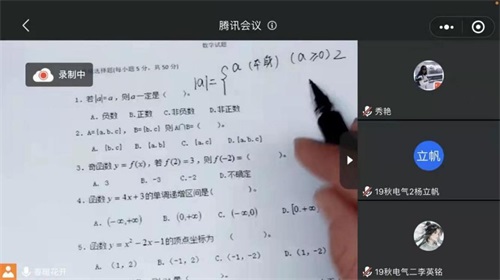 腾讯会议
录制中
数学试题
选择题(每小题5分，共50分)
|a|={ a (本身) (a≥0) 2
1、若|a|=a，则a一定是（ ）。
A、负数 B、正数 C、非负数 D、非正数
2、A={a,b,c}，B={b,c} 则A∩B=（ ）。
A、{b,c} B、{a,b} C、{a,b,c}
3、奇函数y=f(x)，若f(2)=3，则f(-2)=（ ）。
A、3 B、-3 C、-2 D、不确定
4、函数y=4x+3的单调递增区间是（ ）。
A、(-∞,+∞) B、(0,+∞) C、(-∞,0) D、[0,+∞)
5、函数y=x²-2x-1的顶点坐标为（ ）。
A、(1, 2) B、(-1, -2) C、(-1, 2) D、(1, -2)
秀艳
立帆
19秋电气2杨立帆
19秋电气二李英铭